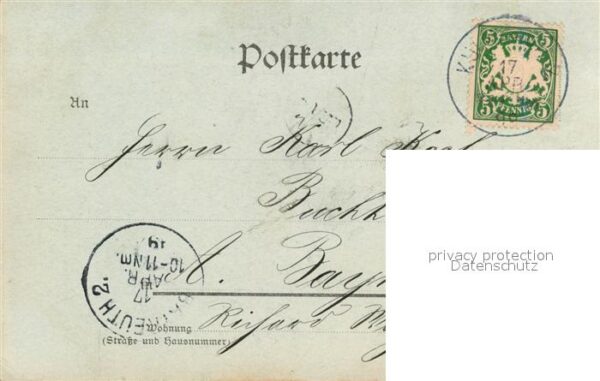 Postkarte
5 BAYERN 5
5 PFENNIG 5
K
17
APR
An
Herrn Karl
Buchh
privacy protection
Datenschutz
A. Bay
BAYREUTH 2.
17
APR.
10-11 Nm.
19
Richard
Wohnung
(Straße und Hausnummer)